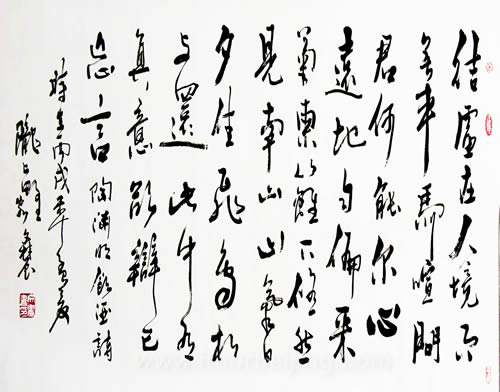 結廬在人境而
無車馬喧問
君何能尔心
遠地自偏采
菊東籬下悠然
見南山山氣日
夕佳飛鳥相
与還此中有
真意欲辯已
忘言 陶渊明飲酒詩
時在丙戌年夏